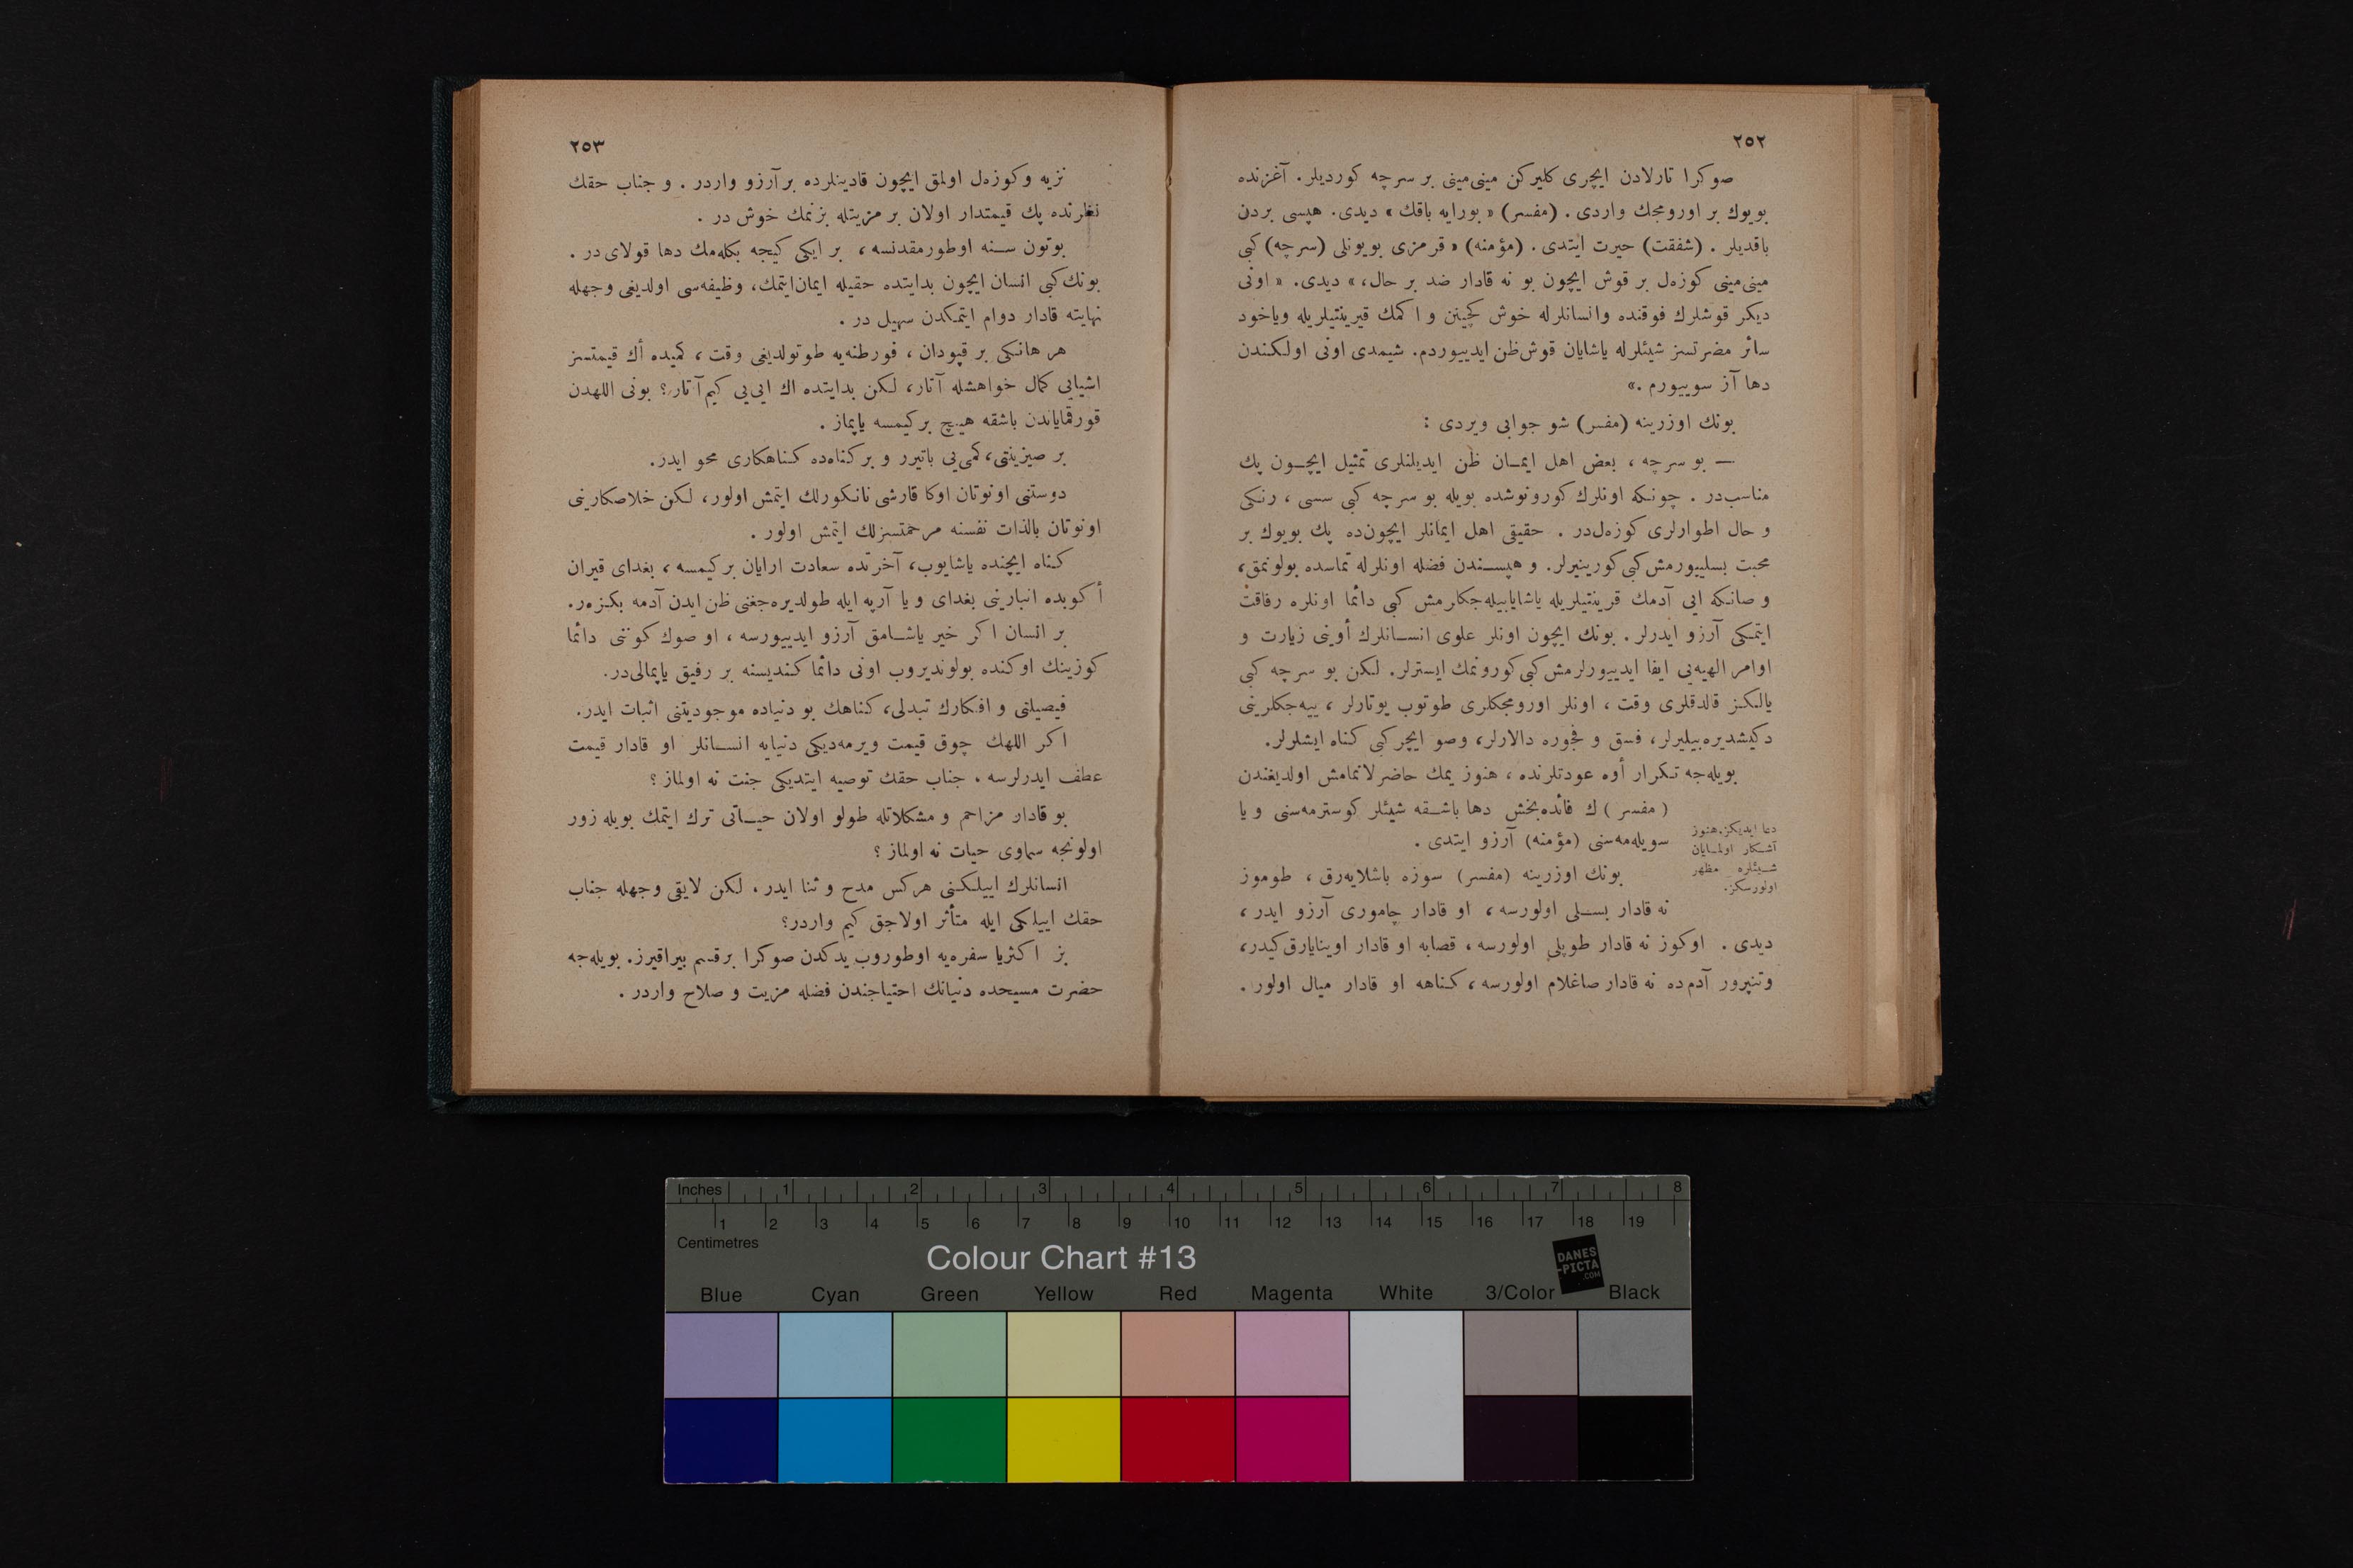 ٢٥٢
صوكرا تارلادن ایچری كلیركن مینی‌مینی بر سرچه كوردیلر. آغزنده
بویوك بر اورومجك واردی . (مفسر) « بورایه باقك » دیدی. هپسی بردن
باقدیلر . (شفقت) حیرت ایتدی . (مؤمنه) « قرمزی بویونلی (سرچه) كبی
مینی‌مینی كوزه‌ل بر قوش ایچون بو نه قادار ضد بر حال، » دیدی. « اونی
دیكر قوشلرك فوقنده وانسانلرله خوش كچینن و اكمك قیرینتیلریله ویاخود
سائر مضرتسز شیئلرله یاشایان قوش‌ظن ایدییوردم. شیمدی اونی اولكندن
دها آز سوییورم .»
بونك اوزرینه (مفسر) شو جوابی ویردی :
— بو سرچه ، بعض اهل ایمان ظن ایدیلنلری تمثیل ایچون پك
مناسب‌در . چونكه اونلرك كورونوشده بویله بو سرچه كبی سسی ، رنكی
و حال اطوارلری كوزه‌ل‌در . حقیقی اهل ایمانلر ایچون‌ده پك بویوك بر
محبت بسلییورمش‌كبی‌كورینیرلر. و هپسندن فضله اونلرله تماسده بولونمق،
و صانكه ایی آدمك قرینتیلریله یاشایابیله‌جكلرمش كبی دائما اونلره رفاقت
ایتمكی آرزو ایدرلر . بونك ایچون اونلر علوی انسانلرك أوینی زیارت و
اوامر الهیه‌یی ایفا ایدییورلرمش‌كبی‌كورونمك ایسترلر. لكن بو سرچه كبی
یالكز قالدقلری وقت ، اونلر اورومجكلری طوتوب یوتارلر ، ییه‌جكلرینی
دكیشدیره‌بیلیرلر، فسق و فجوره دالارلر، وصو ایچر كبی كناه ایشلرلر.
بویله‌جه تكرار أوه عودتلرنده ، هنوز یمك حاضرلانمامش اولدیغندن
( مفسر )ك فائده‌بخش دها باشقه شیئلر كوسترمه‌سنی و یا
سویله‌مه‌سنی (مؤمنه) آرزو ایتدی .
دعا ایدیكز.هنوز
آشكار اولمایان
شیئلره مظهر
اولورسكز.
بونك اوزرینه (مفسر) سوزه باشلایه‌رق ، طوموز
نه قادار بسلی اولورسه ، او قادار چاموری آرزو ایدر ،
دیدی . اوكوز نه قادار طوپلی اولورسه ، قصابه او قادار اوینایارق‌كیدر،
وتنپرور آدم‌ده نه قادار صاغلام اولورسه ،كناهه او قادار میال اولور .
٢٥٣
نزیه وكوزه‌ل اولمق ایچون قادینلرده بر آرزو واردر . و جناب حقك
نظرنده پك قیمتدار اولان بر مزیتله بزنمك خوش در .
بوتون سنه اوطورمقدنسه ، بر ایكی كیجه بكله‌مك دها قولای در .
بونك‌كبی انسان ایچون بدایتده حقیله ایمان‌ایتمك، وظیفه‌سی اولدیغی وجهله
نهایته قادار دوام ایتمكدن سهیل در .
هر هانكی بر قپودان ، فورطنه‌یه طوتولدیغی وقت ، كمیده أك قیمتسز
اشیایی كمال خواهشله آتار، لكن بدایتده اك ایی‌یی كیم آتار؟ بونی اللهدن
قورقمایاندن باشقه هیچ بركیمسه یاپماز .
بر صیزینتی،كمی‌یی باتیرر و بر كناه‌ده كناهكاری محو ایدر.
دوستنی اونوتان اوكا قارشی نانكورلك ایتمش اولور، لكن خلاصكارینی
اونوتان بالذات نفسنه مرحمتسزلك ایتمش اولور .
كناه ایچنده یاشایوب، آخرتده سعادت ارایان بركیمسه ، بغدای قیران
أكوبده انبارینی بغدای و یا آرپه ایله طولدیره‌جغنی ظن ایدن آدمه بكزه‌ر.
بر انسان اكر خیر یاشامق آرزو ایدییورسه ، او صوك كوننی دائما
كوزینك اوكنده بولوندیروب اونی دائما كندیسنه بر رفیق یاپمالی‌در.
فیصیلتی و افكارك تبدلی، كناهك بو دنیاده موجودیتنی اثبات ایدر.
اكر اللهك چوق قیمت ویرمه‌دیكی دنیایه انسانلر او قادار قیمت
عطف ایدرلرسه ، جناب حقك توصیه ایتدیكی جنت نه اولماز ؟
بو قادار مزاحم و مشكلاتله طولو اولان حیاتی ترك ایتمك بویله زور
اولونجه سماوی حیات نه اولماز ؟
انسانلرك اییلكنی هركس مدح و ثنا ایدر ، لكن لایقی وجهله جناب
حقك اییلكی ایله متأثر اولاجق كیم واردر؟
بز اكثریا سفره‌یه اوطوروب‌یدكدن صوكرا برقسم بیراقیرز. بویله‌جه
حضرت مسیحده دنیانك احتیاجندن فضله مزیت و صلاح واردر .
Inches 1 2 3 4 5 6 7 8
1 2 3 4 5 6 7 8 9 10 11 12 13 14 15 16 17 18 19
Centimetres
Colour Chart #13
DANES
-PICTA
.COM
Blue Cyan Green Yellow Red Magenta White 3/Color Black